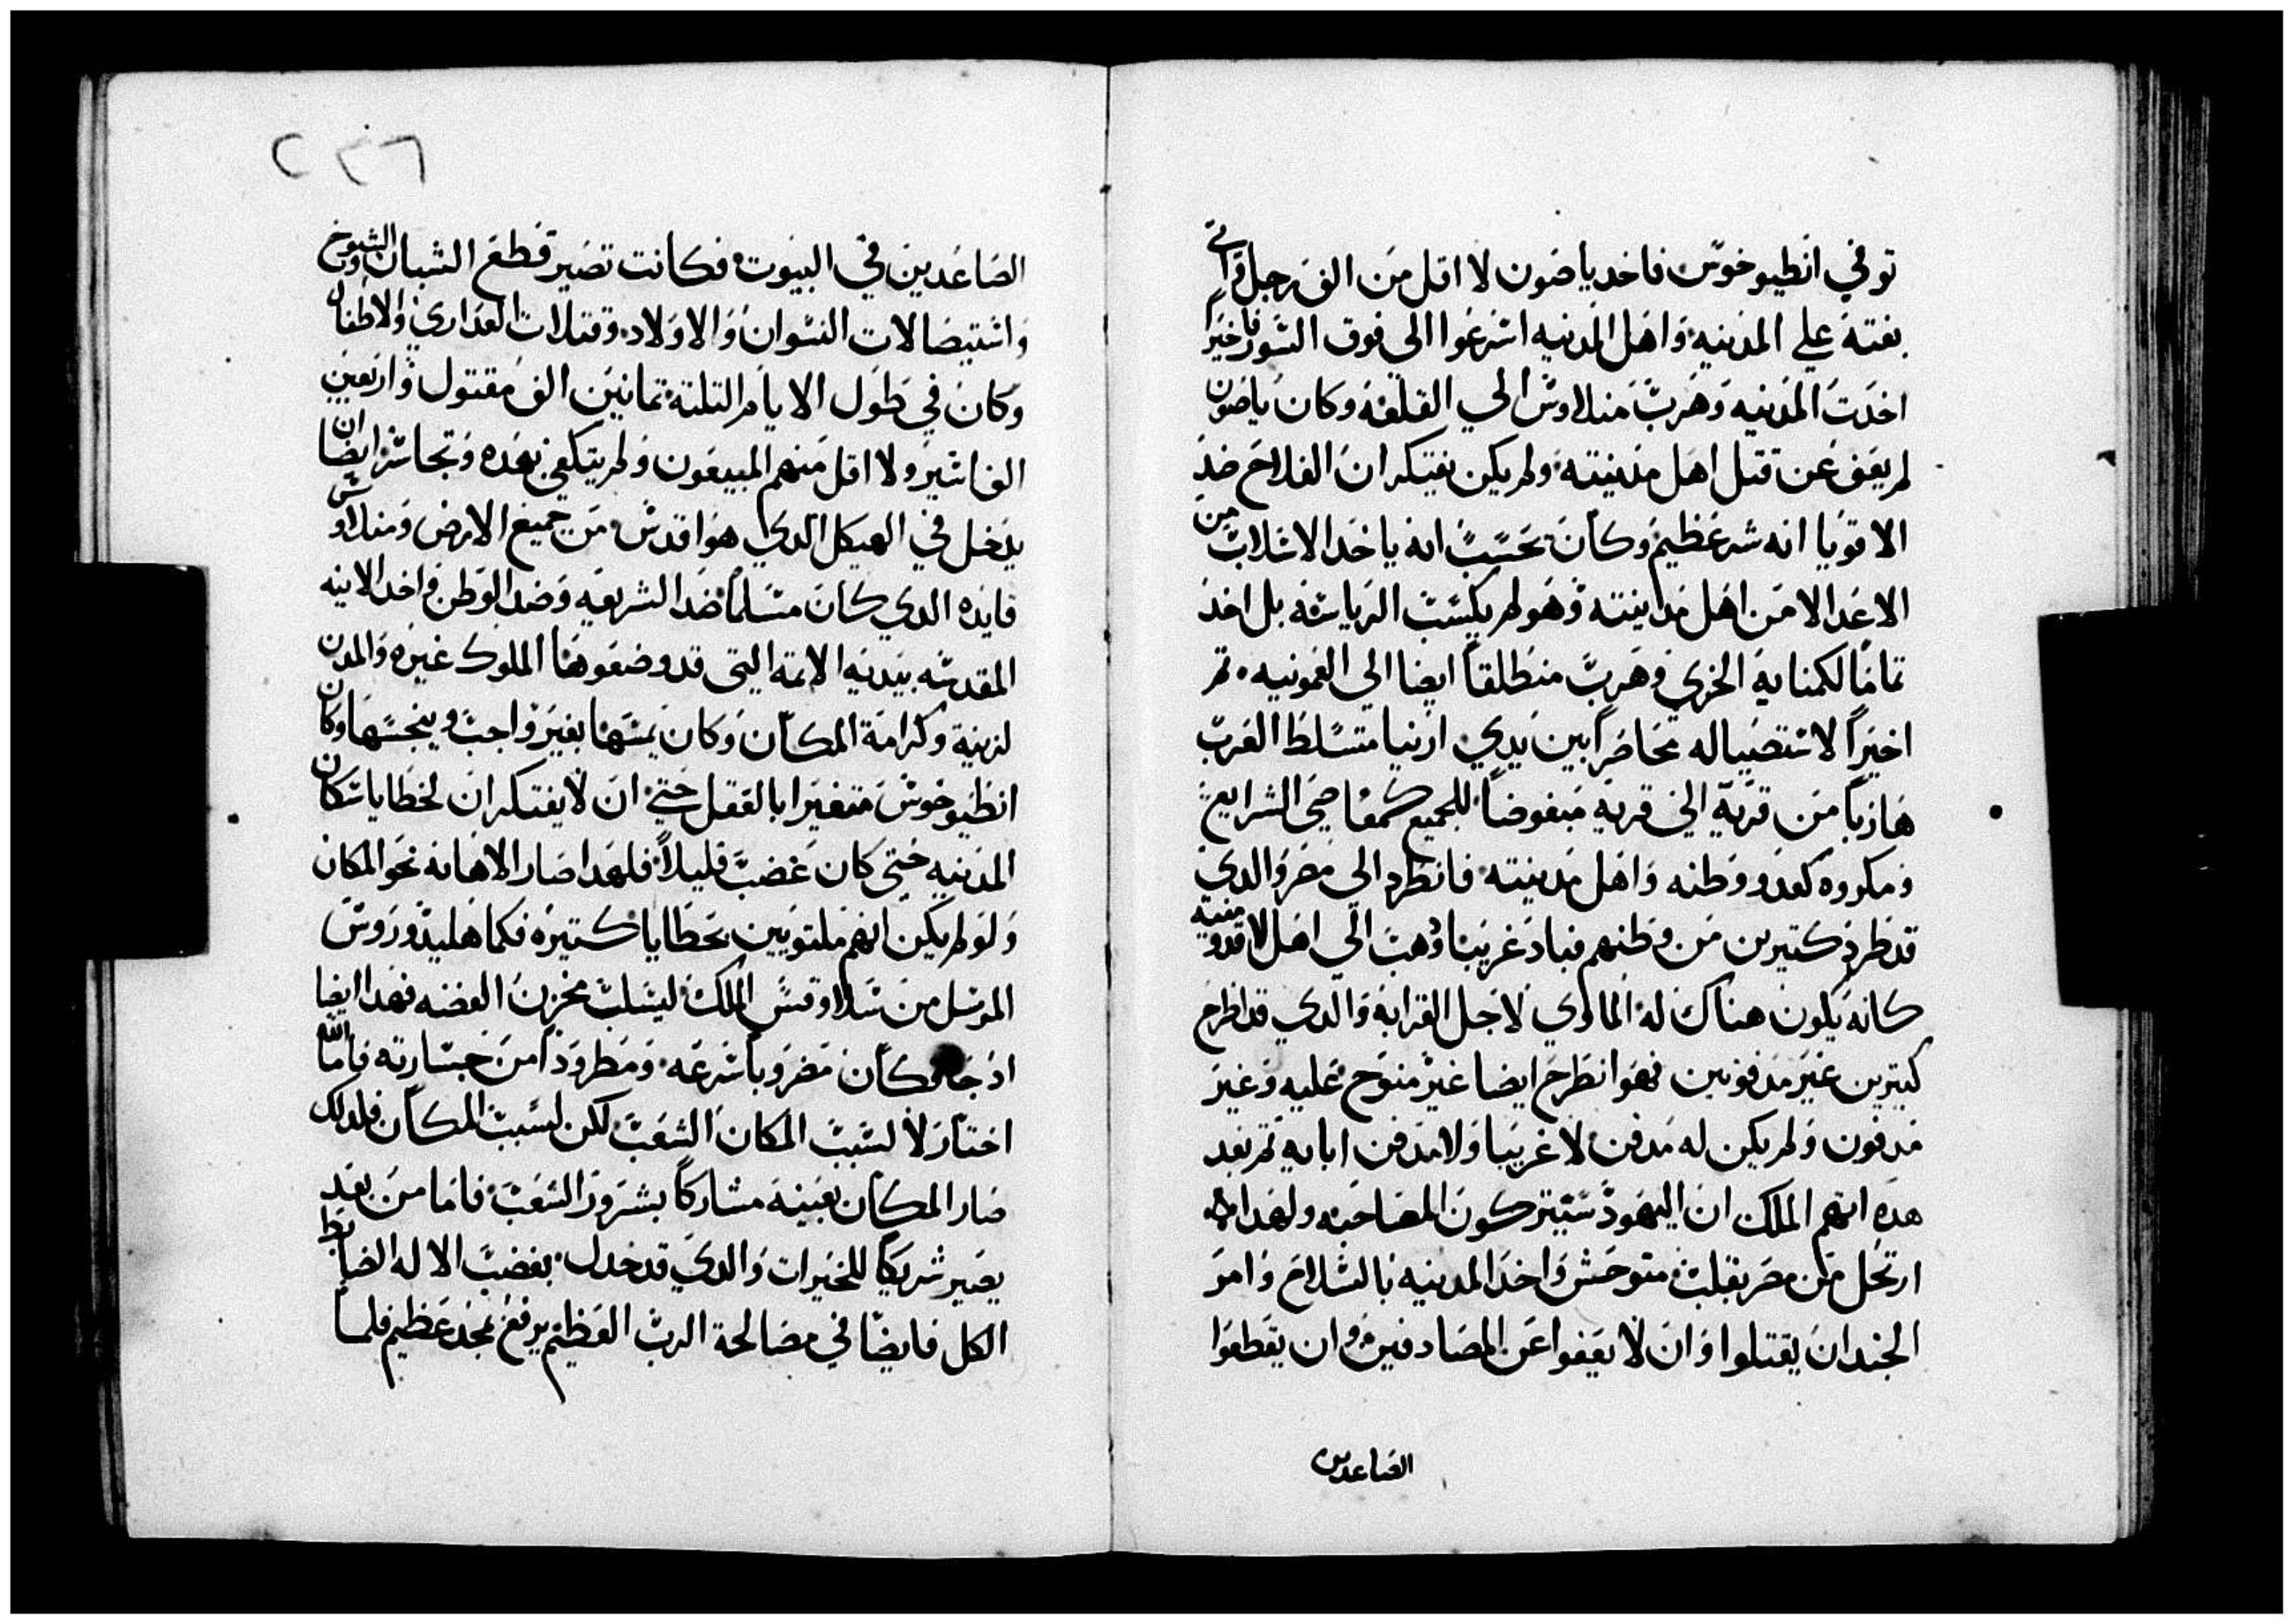 توفي انطيوخوس فاخد ياصون لا اقل من الف رجل واتي
بغتة علي المدينه واهل المدينه اسرعوا الي فوق السور فاخيرا
اخدت المدينه وهرب منلاوس الي القلعه وكان ياصون
لم يعف عن قتل اهل مدينته ولم يكن يفتكر ان الفلاح ضد
الاقربا انه شر عظيم وكان يحسب انه ياخد الاسلاب من
الاعدا لا من اهل مدينته وهو لم يكسب الرياسه بل اخد
تماما لكمنايه الخزي وهرب منطلقا ايضا الي العمونيه ثم
اخيرا لاستصياله محاضرا بين يدي ارتيا متسلط العرب
هاربا من قرية الي قريه مبغوضا للجميع كمعاصي الشرايع
ومكروه كعدو وطنه واهل مدينته فانطرد الي مصر والدي
قد طرد كتيرين من وطنهم فباد غريبا ودهب الي اهل لاقدونيه
كانه يكون هناك له الماوي لاجل القرابه والدي قد اطرح
كتيرين غير مدفونين فهو انطرح ايضا غير منوح عليه وغير
مدفون ولم يكن له مدفن لا غريبا ولا مدفن ابايه ثم بعد
هده اتهم الملك ان اليهود سيتركون المصاحبه ولهدا
ارتحل من مصر بقلب متوحش واخد المدينه بالسلاح وامر
الجند ان يقتلوا وان لا يعفوا عن المصادفين وان يقطعوا
الصاعدين
٢٣٦
الصاعدين في البيوت فكانت تصير قطع الشبان والشيوخ
واستيصالات النسوان والاولاد وقتلات العداري والاطفال
وكان في طول الايام التلتة تمانين الف مقتول واربعين
الف اسير ولا اقل منهم المبيعون ولم يتكفي بهده وتجاسر ايضا ان
يدخل في الهيكل الدي هو اقدس من جميع الارض ومنلاوس
قايده الدي كان مسلما ضد الشريعه وضد الوطن واخد الانيه
المقدسه بيديه الاتمه التي قد وضعوها الملوك غيره والمدن
لزينة وكرامة المكان وكان يمسها بغير واجب وينجسها وكان
انطيوخوس متغيرا بالعقل حتي ان لا يفتكر ان لخطايا سكان
المدينه حتي كان غضب قليلا فلهدا صار الاهانه نحو المكان
ولو لم يكن انهم ملتويين بخطايا كتيره فكما هليدوروس
المرسل من سلاوقس الملك ليسلب مخزن الفضه فهدا ايضا
اد جا فكان مضروبا سرعه ومطرودا من جسارته فاما الله
اختار لا لسبب المكان الشعب لكن لسبب المكان فلدلك
صار المكان بعينه مشاركا بشرور الشعب فاما من بعد
يصير شريكا للخيرات والدي قد خدل بغضب الاله الضابط
الكل فايضا في مصالحة الرب العظيم يرفع بمجد عظيم فلما